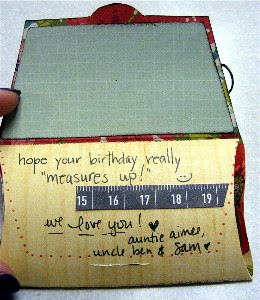 hope your birthday really
"measures up!"
15 16 17 18 19
we love you!
auntie aimee,
uncle ben & Sam